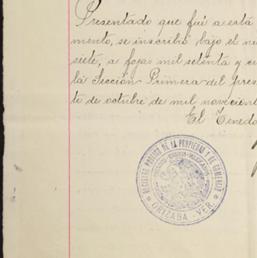 Presentado que fué a está
mento, se inscribió bajo el nú
siete, a fojas mil setenta y ci
la Sección Primera del pres
to de octubre de mil novecien
El Tenedo
REGISTRO PÚBLICO DE LA PROPIEDAD Y DE COMERCIO
ORIZABA - VER.